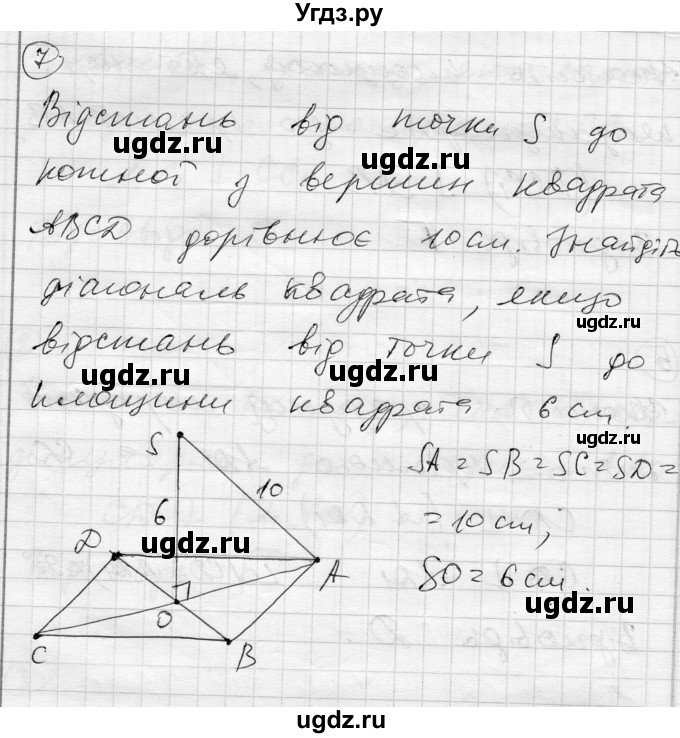 Угдз.ру
7
Відстань від точки S до
кожної з вершин квадрата
ABCD дорівнює 10 см. Знайдіть
діагональ квадрата, якщо
відстань від точки S до
площини квадрата 6 см.
SA = SB = SC = SD =
= 10 см;
SO = 6 см.
S
10
6
D
A
O
C
B
ugdz.ru
ugdz.ru
ugdz.ru
ugdz.ru
ugdz.ru
ugdz.ru
ugdz.ru
ugdz.ru
ugdz.ru
ugdz.ru